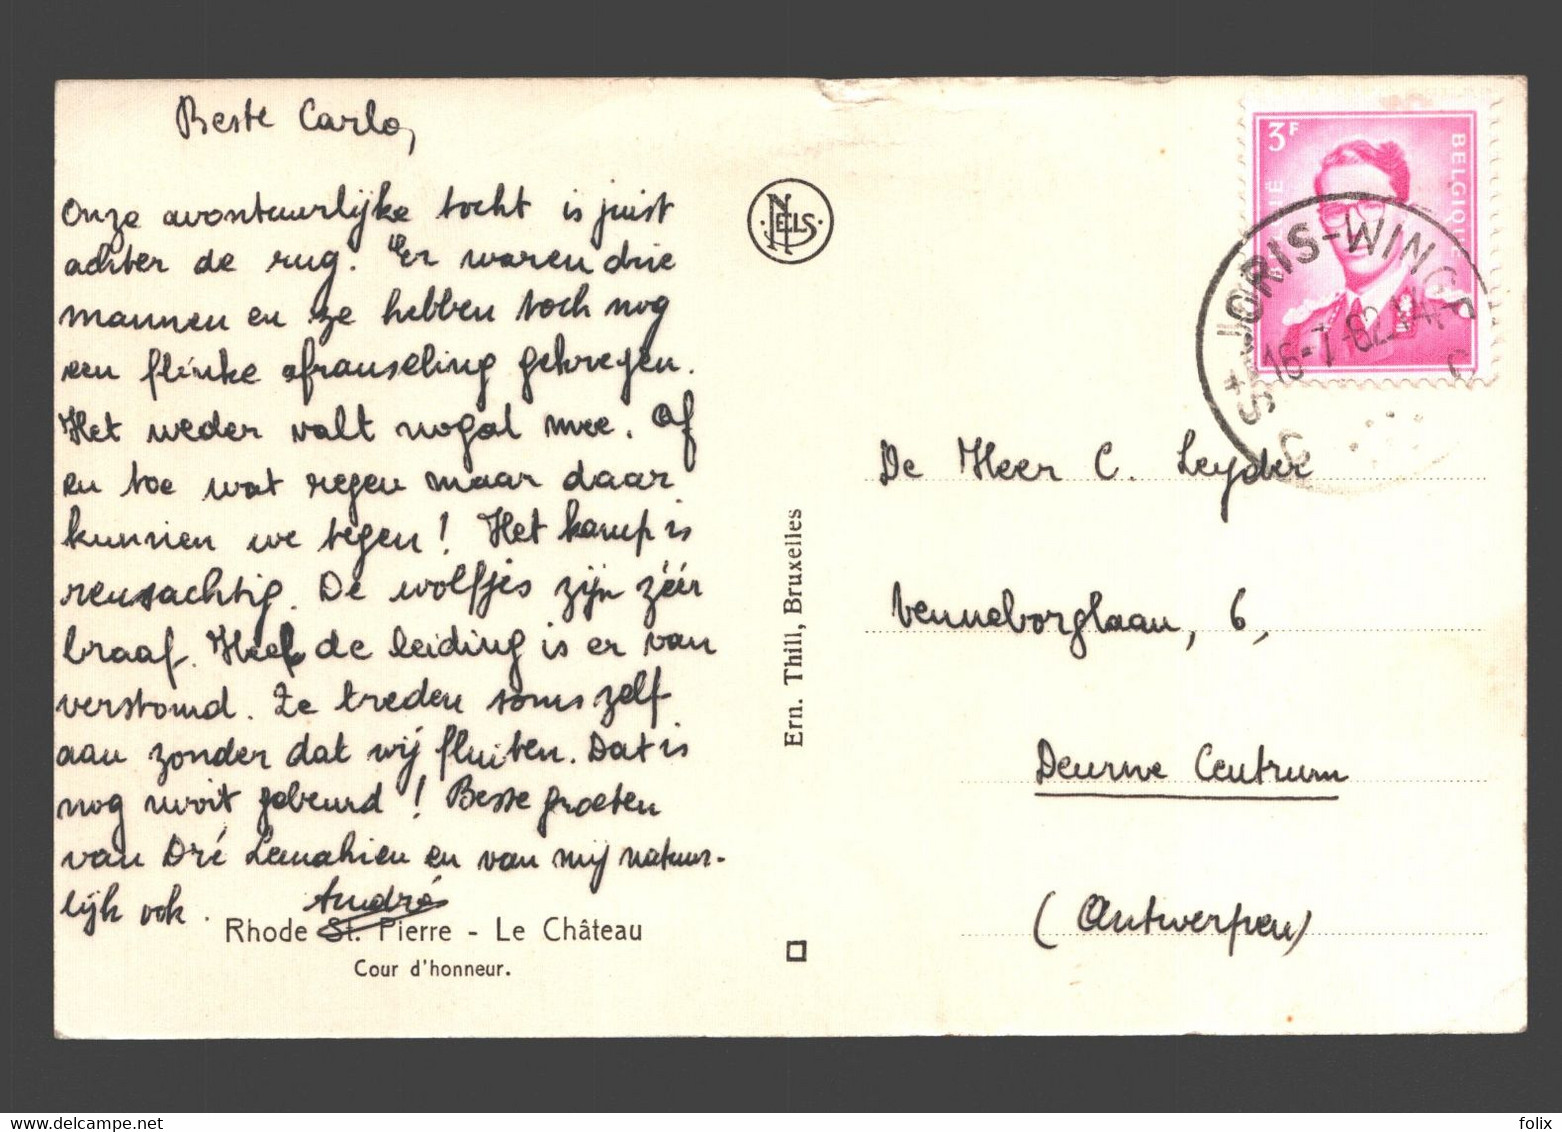 Beste Carlo,
Onze avontuurlijke tocht is juist
achter de rug. Er waren drie
mannen en ze hebben toch nog
een flinke afranseling gekregen.
Het weder valt nogal mee. Af
en toe wat regen maar daar
kunnen we tegen! Het kamp is
reusachtig. De wolfjes zijn zéér
braaf. Heel de leiding is er van
verstomd. Ze treden soms zelf
aan zonder dat wij fluiten. Dat is
nog nooit gebeurd! Beste groeten
van Dré Lemahieu en van mij natuur-
lijk ook. André
Rhode St. Pierre - Le Château
Cour d'honneur.
NELS
Ern. Thill, Bruxelles
3F
BELGIQUE
ST JORIS-WINGE
16-7-62-14
C C
De Heer C. Leyder
Venneborglaan, 6,
Deurne Centrum
(Antwerpen)
folix